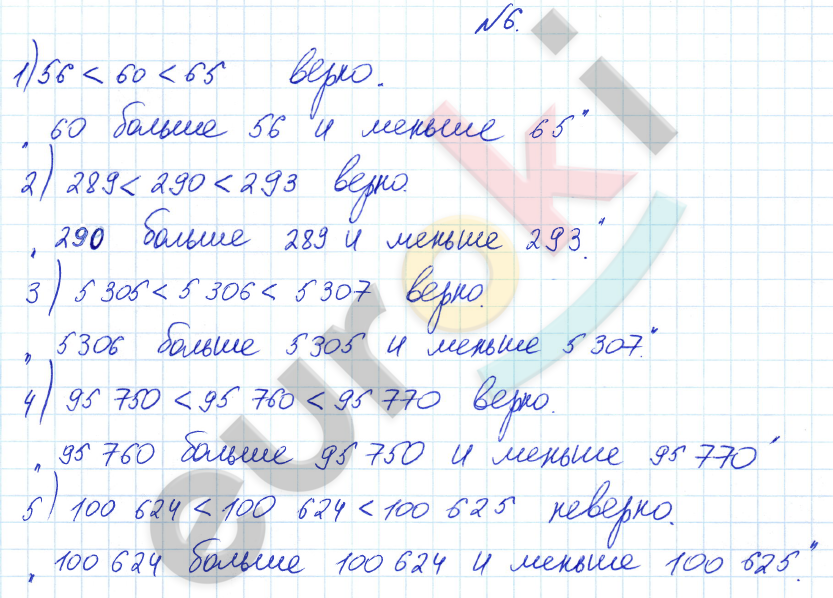 №6.
1) 56 < 60 < 65 верно.
„60 больше 56 и меньше 65"
2) 289 < 290 < 293 верно.
„290 больше 289 и меньше 293."
3) 5 305 < 5 306 < 5 307 верно.
„5306 больше 5305 и меньше 5307."
4) 95 750 < 95 760 < 95 770 верно.
„95 760 больше 95 750 и меньше 95 770"
5) 100 624 < 100 624 < 100 625 неверно.
„100 624 больше 100 624 и меньше 100 625."
euroki